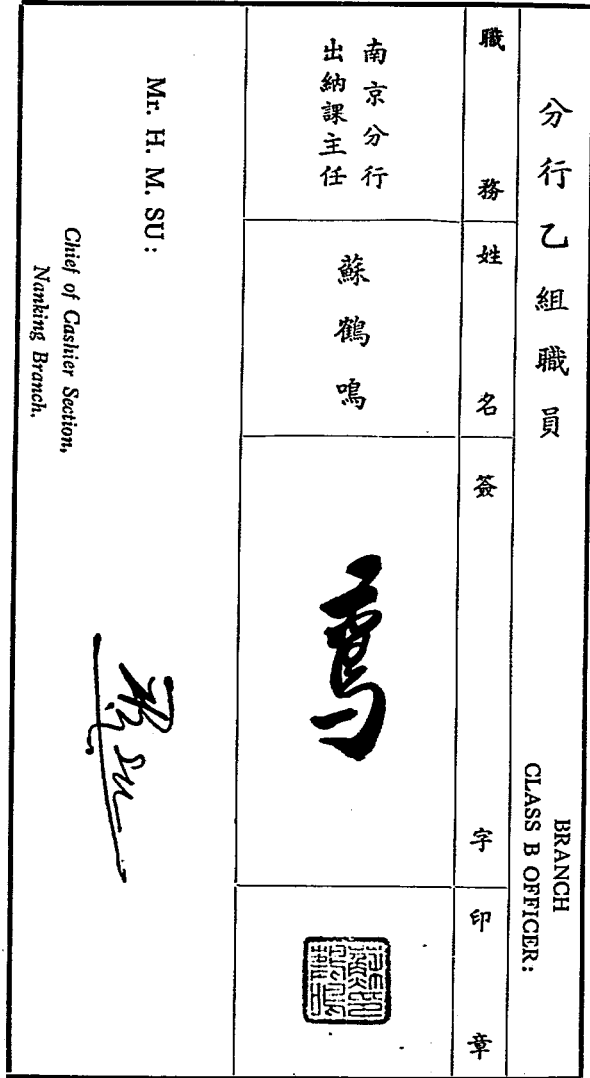 分行乙組職員
BRANCH
CLASS B OFFICER:
職務
姓名
簽字
印章
南京分行
出納課主任
蘇鶴鳴
Mr. H. M. SU:
Chief of Cashier Section,
Nanking Branch.